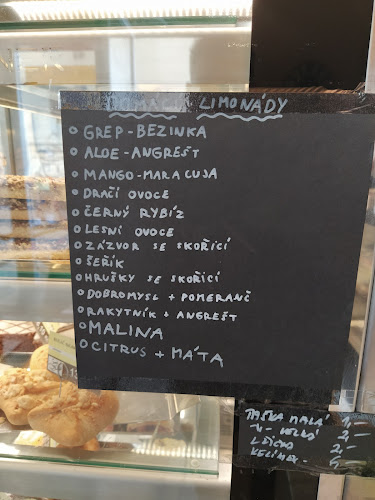 DOMÁCÍ LIMONÁDY
GREP-BEZINKA
ALOE-ANGREŠT
MANGO-MARACUJA
DRAČÍ OVOCE
ČERNÝ RYBÍZ
LESNÍ OVOCE
ZÁZVOR SE SKOŘICÍ
ŠEŘÍK
HRUŠKY SE SKOŘICÍ
DOBROMYSL + POMERANČ
RAKYTNÍK + ANGREŠT
MALINA
CITRUS + MÁTA
TAŠKA MALÁ 1,-
2,-
2,-
KELÍMEK- 5,-